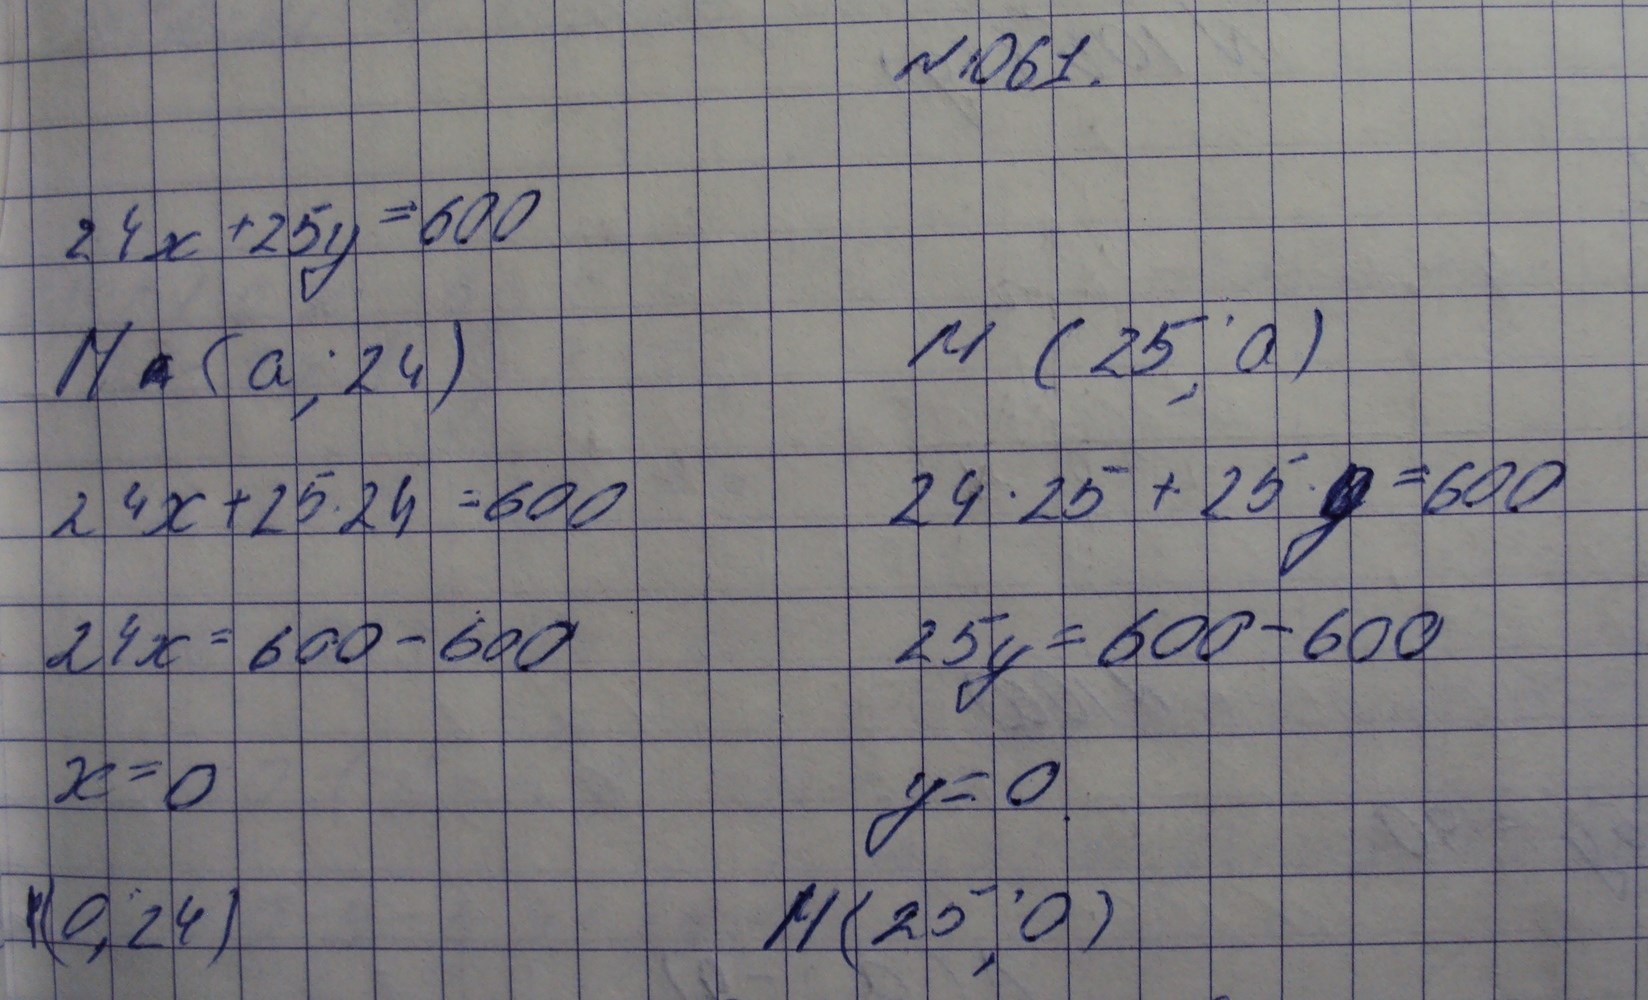 №1061.
24x+25y=600
M (a; 24)
M (25; a)
24x+25·24=600
24·25+25·y=600
24x=600-600
25y=600-600
x=0
y=0
(0; 24)
M(25; 0)